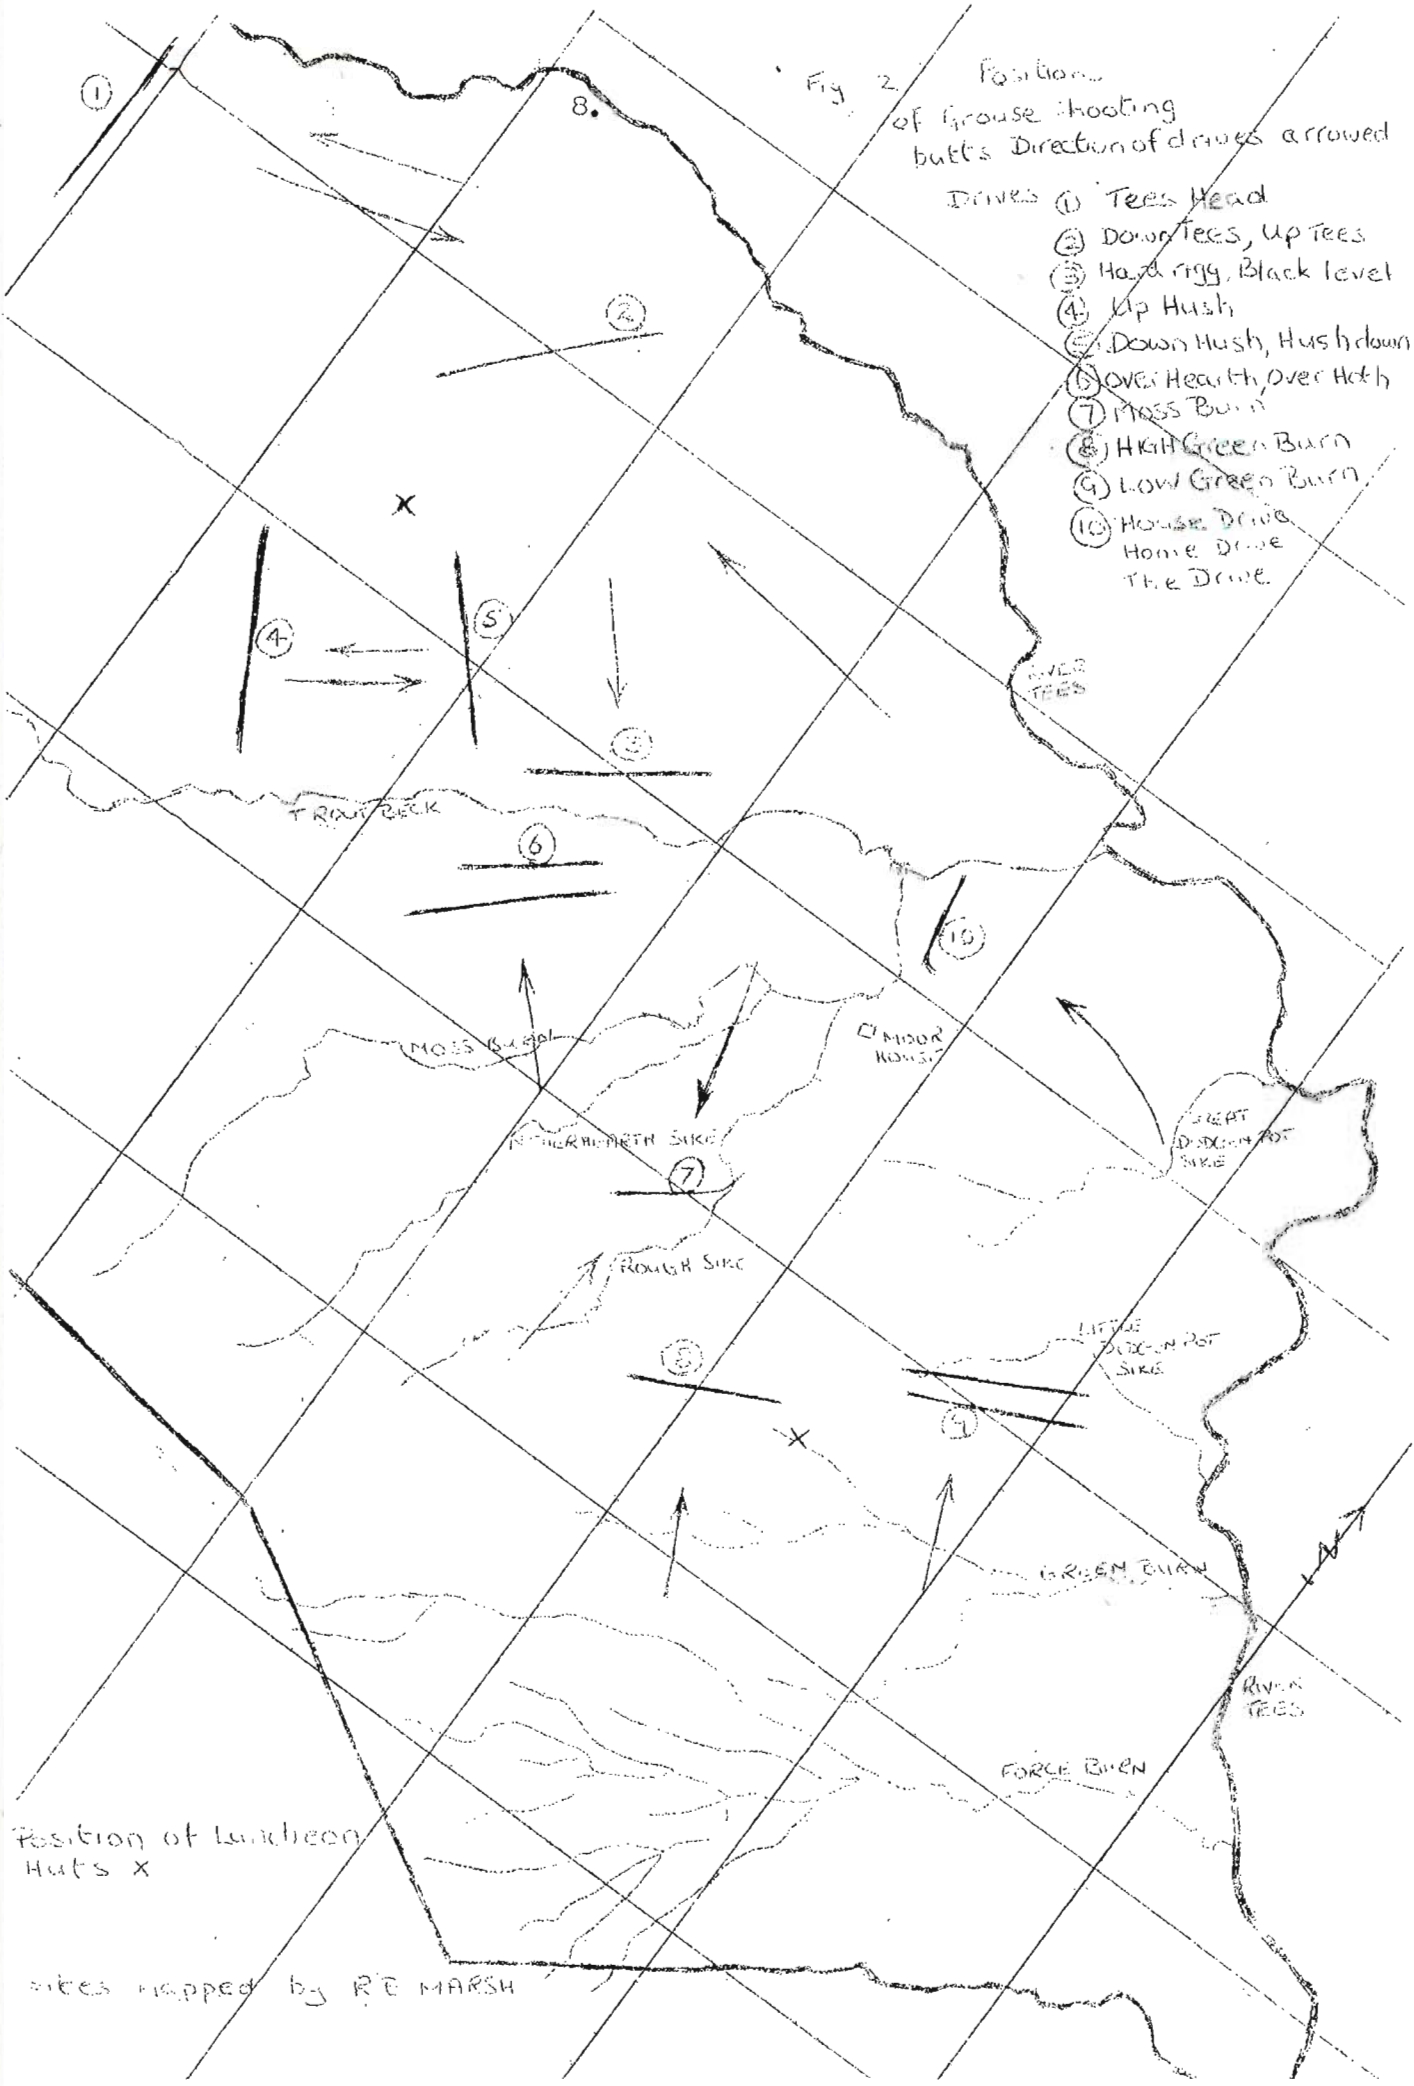 Fig 2 Positions
of Grouse shooting
butts Direction of drives arrowed
Drives ① Tees Head
② Down Tees, Up Tees
③ Hard rigg, Black level
④ Up Hush
⑤ Down Hush, Hush down
⑥ Over Hearth, Over Hoth
⑦ Moss Burn
⑧ HIGH Green Burn
⑨ LOW Green Burn
⑩ House Drive
Home Drive
The Drive
①
8.
②
X
④
⑤
RIVER
TEES
③
TROUT BECK
⑥
⑩
MOSS BURN
MOOR
HOUSE
GREAT
DODGEN POT
SIKE
NETHERHEARTH SIKE
⑦
ROUGH SIKE
LITTLE
DODGEN POT
SIKE
⑧
⑨
X
N
GREEN BURN
RIVER
TEES
FORCE BURN
Position of Luncheon
Huts X
sites mapped by R E MARSH